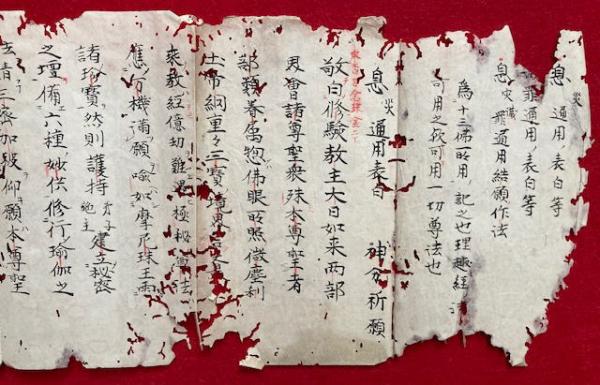 息災通用表白等
罪通用表白等
息災滅罪通用結願作法
為十三佛所用記之也理趣経
可用之仍可用一切尊法也
息災通用表白 神分祈願
敬白修験教主大日如来両部
界會諸尊聖衆殊本尊聖者
部類眷属惣佛眼所照微塵刹
土帝網重々三寶境界
来教経億劫難遇極秘
應万機満願喩如摩尼珠王雨
諸珍寶然則護持弟子施主建立秘密
之壇備六種妙供修行瑜伽之
法請三密加段仰願本尊聖